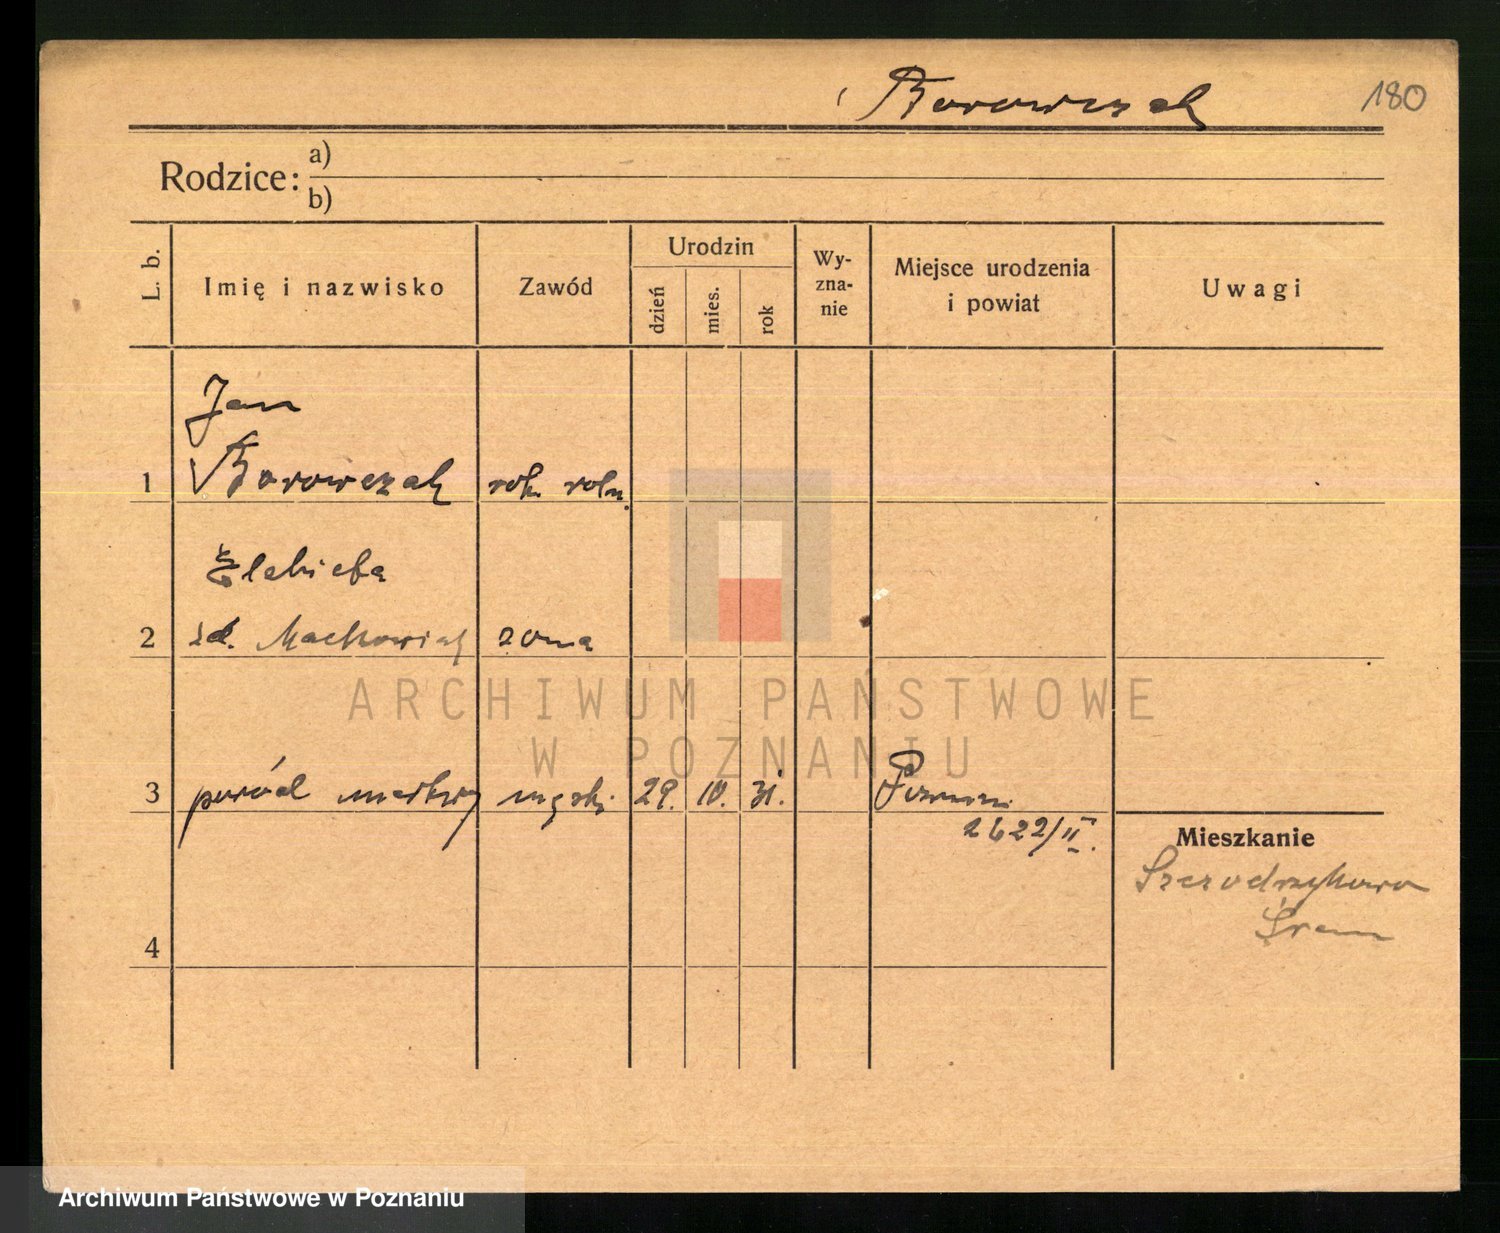 Borowczak 180
Rodzice: a)
b)
L. b. Imię i nazwisko Zawód Urodzin dzień mies. rok Wy-zna-nie Miejsce urodzenia i powiat Uwagi
Jan
1 Borowczak rob. roln.
Elżbieta
2 zd. Maćkowiak żona
ARCHIWUM PAŃSTWOWE
W POZNANIU
3 poród martwy męski 29. IV. 31. Poznań
2622/II.
Mieszkanie
Szczodrzykowo
Śrem
4
Archiwum Państwowe w Poznaniu